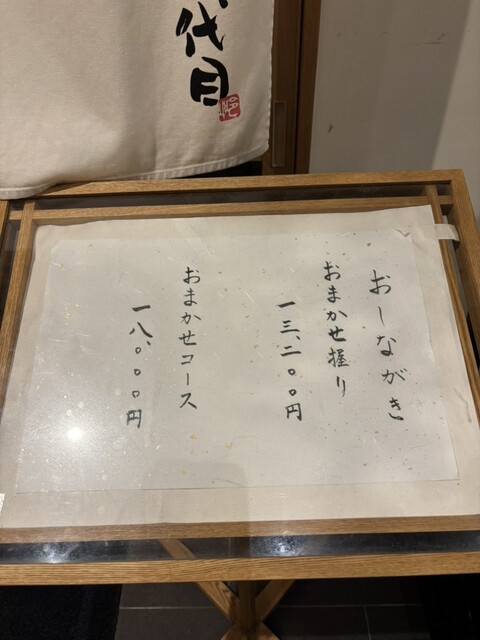 代目
おしながき
おまかせ握り
一三、二〇〇円
おまかせコース
一八、〇〇〇円